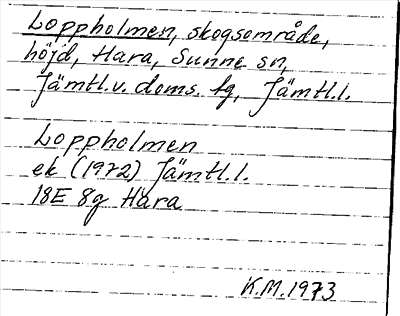 Loppholmen, skogsområde,
höjd, Hara, Sunne sn,
Jämtl.v. doms. tg, Jämtl.l.
Loppholmen
ek (1972) Jämtl.l.
18E 8g Hara
K.M.1973